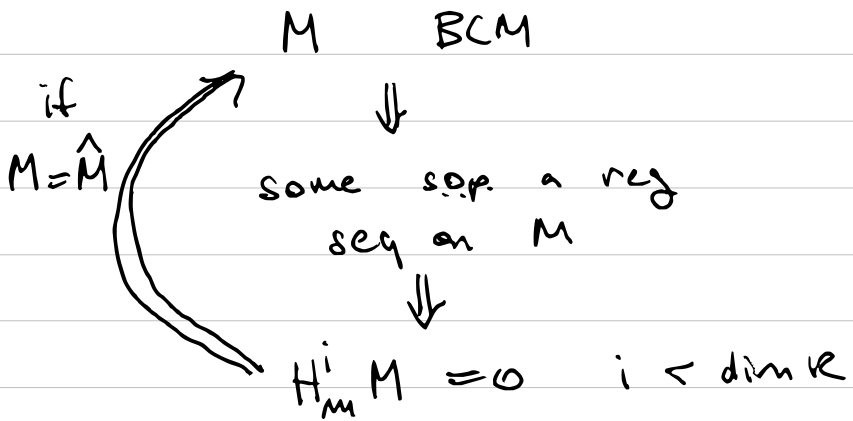 M BCM
⇓
if
M = M̂
some s.o.p. a reg
seq on M
⇓
H^i_m M = 0 i < dim R